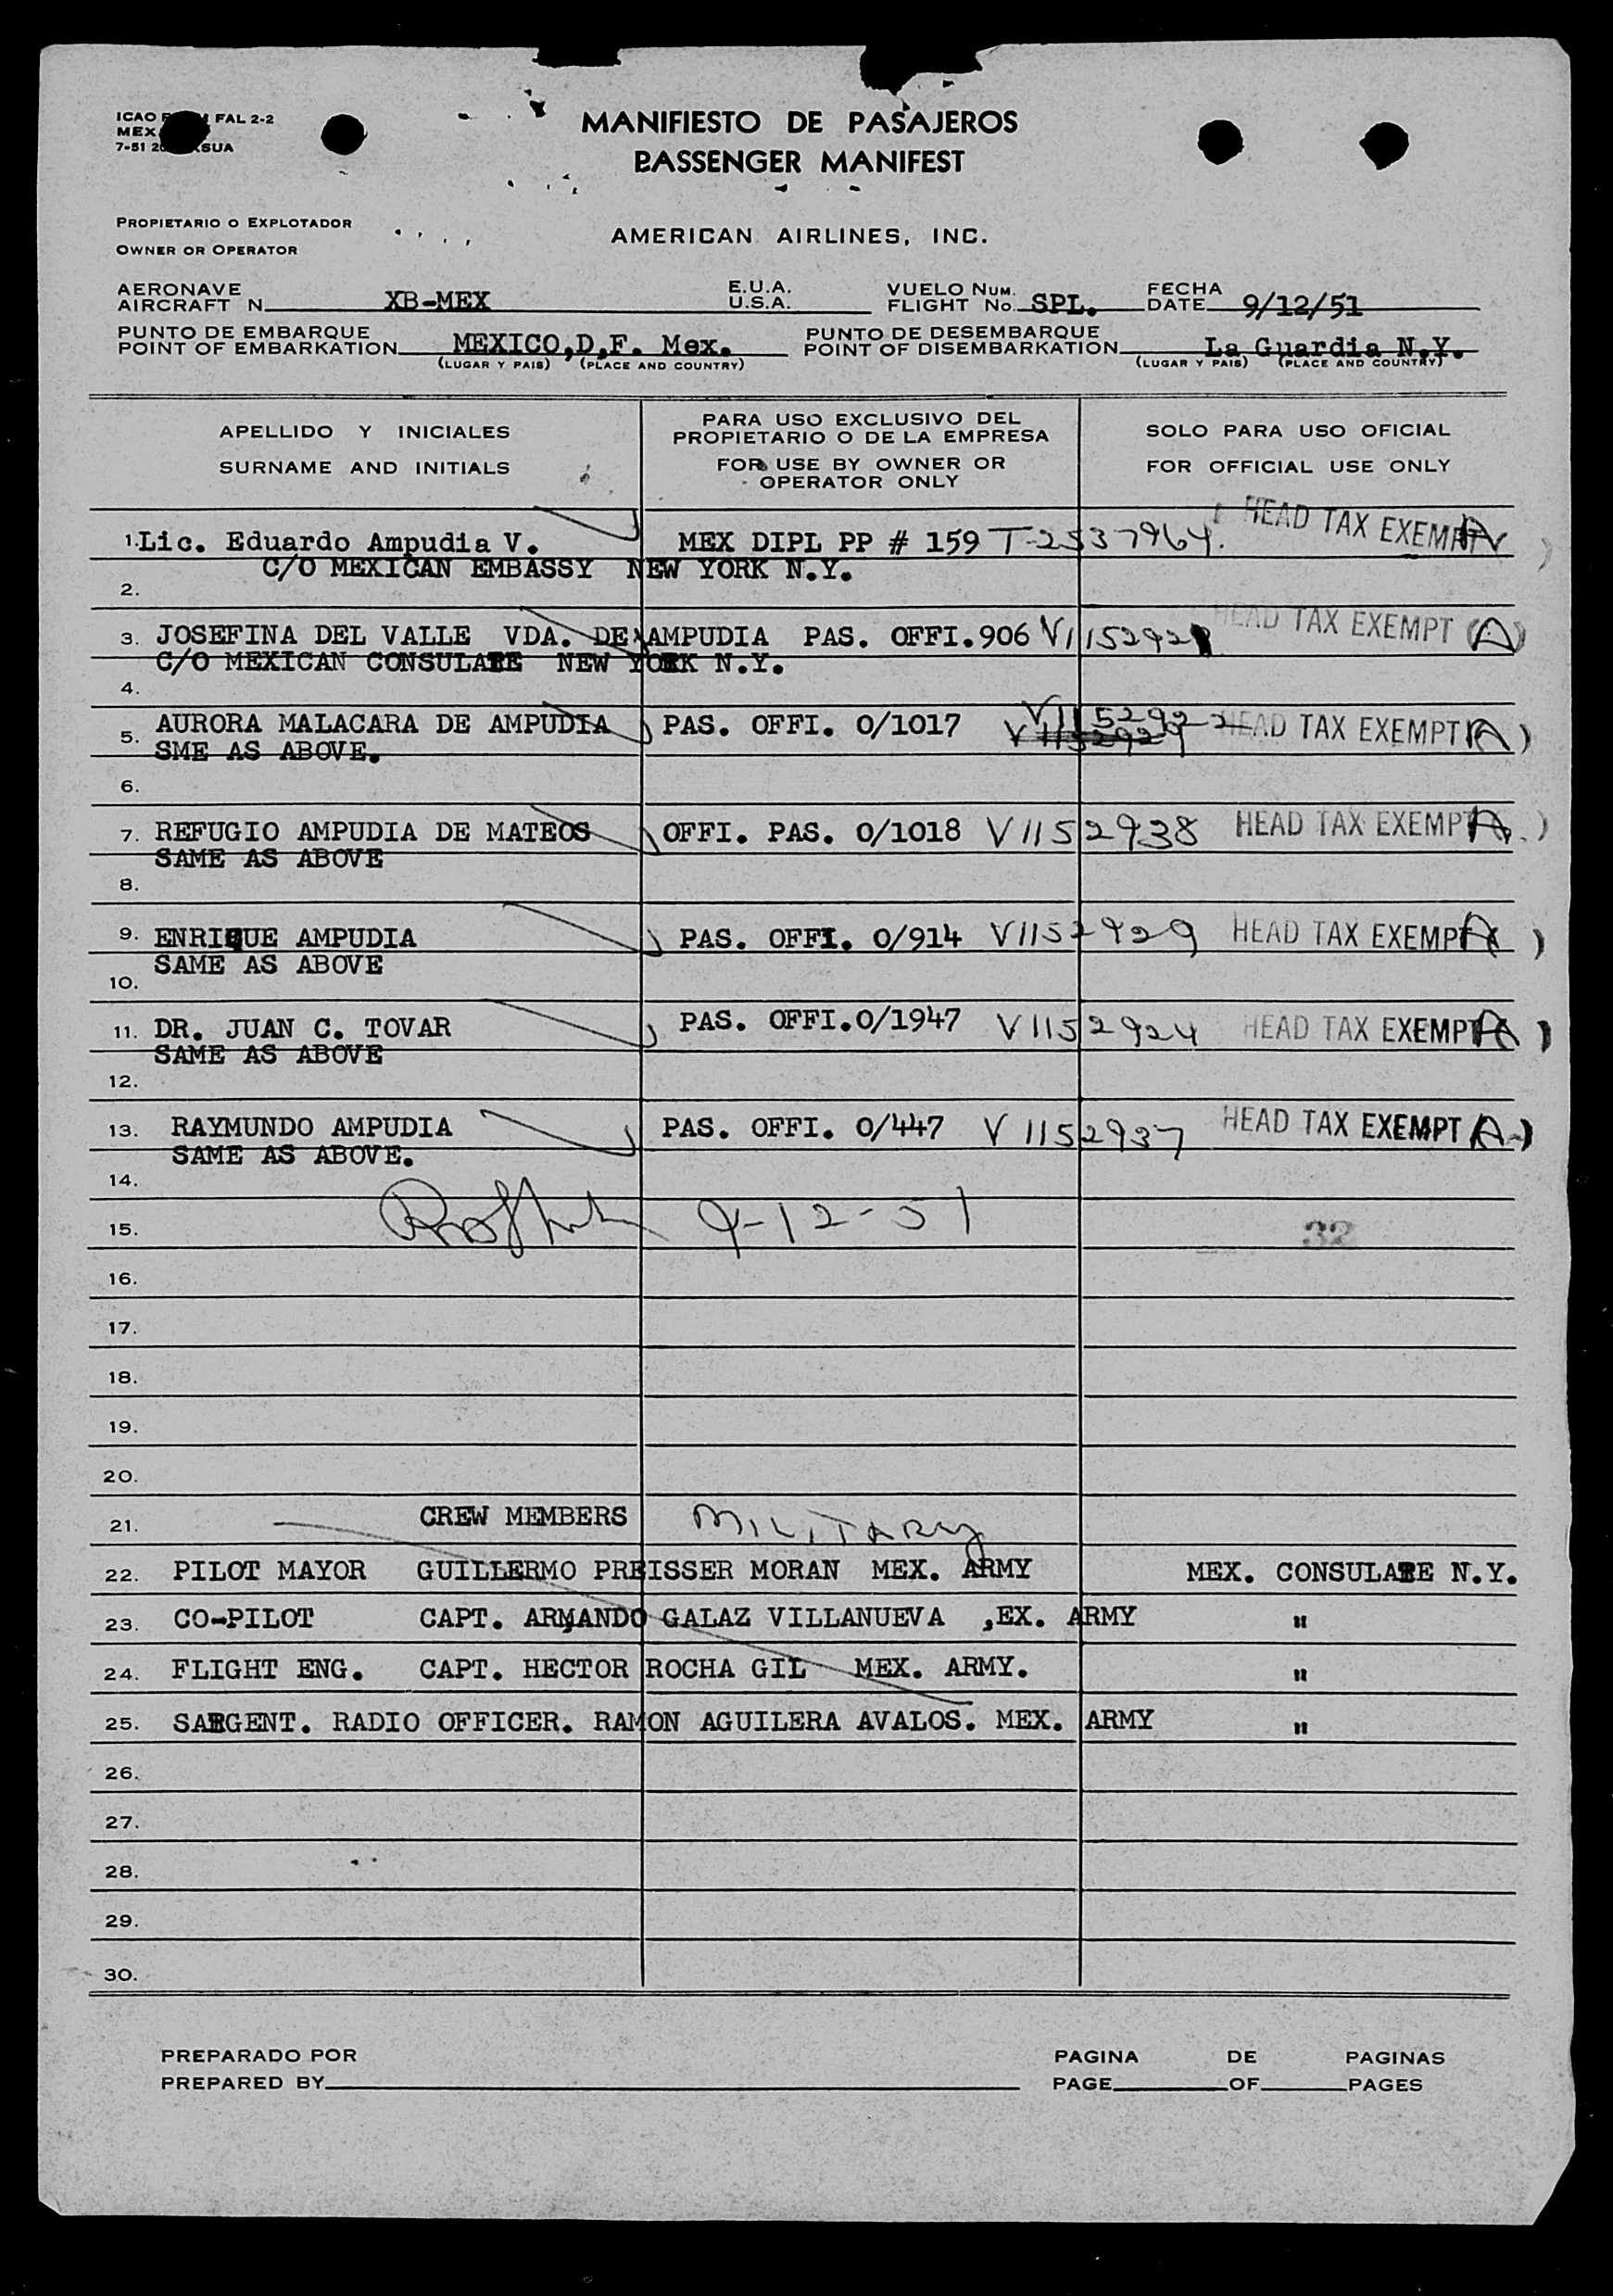 ICAO FAL 2-2
MEX
7-51 SUA
MANIFIESTO DE PASAJEROS
PASSENGER MANIFEST
PROPIETARIO O EXPLOTADOR
OWNER OR OPERATOR
AMERICAN AIRLINES, INC.
AERONAVE E.U.A. VUELO NUM. FECHA
AIRCRAFT N XB-MEX U.S.A. FLIGHT No SPL. DATE 9/12/51
PUNTO DE EMBARQUE PUNTO DE DESEMBARQUE
POINT OF EMBARKATION MEXICO,D.F. Mex. POINT OF DISEMBARKATION La Guardia N.Y.
(LUGAR Y PAIS) (PLACE AND COUNTRY) (LUGAR Y PAIS) (PLACE AND COUNTRY)
APELLIDO Y INICIALES
SURNAME AND INITIALS
PARA USO EXCLUSIVO DEL
PROPIETARIO O DE LA EMPRESA
FOR USE BY OWNER OR
OPERATOR ONLY
SOLO PARA USO OFICIAL
FOR OFFICIAL USE ONLY
1. Lic. Eduardo Ampudia V. MEX DIPL PP # 159 T-2537964. HEAD TAX EXEMPT
C/O MEXICAN EMBASSY NEW YORK N.Y.
2.
3. JOSEFINA DEL VALLE VDA. DE AMPUDIA PAS. OFFI.906 HEAD TAX EXEMPT (A)
C/O MEXICAN CONSULATE NEW YORK N.Y.
4.
5. AURORA MALACARA DE AMPUDIA PAS. OFFI. O/1017 V1152922 HEAD TAX EXEMPT (A)
SME AS ABOVE.
6.
7. REFUGIO AMPUDIA DE MATEOS OFFI. PAS. O/1018 V1152938 HEAD TAX EXEMPT
SAME AS ABOVE
8.
9. ENRIQUE AMPUDIA PAS. OFFI. O/914 V1152929 HEAD TAX EXEMPT
SAME AS ABOVE
10.
11. DR. JUAN C. TOVAR PAS. OFFI.O/1947 V1152924 HEAD TAX EXEMPT
SAME AS ABOVE
12.
13. RAYMUNDO AMPUDIA PAS. OFFI. O/447 V1152937 HEAD TAX EXEMPT (A)
SAME AS ABOVE.
14.
15. 9-12-51 32
16.
17.
18.
19.
20.
21. CREW MEMBERS MILITARY
22. PILOT MAYOR GUILLERMO PREISSER MORAN MEX. ARMY MEX. CONSULATE N.Y.
23. CO-PILOT CAPT. ARMANDO GALAZ VILLANUEVA ,EX. ARMY "
24. FLIGHT ENG. CAPT. HECTOR ROCHA GIL MEX. ARMY. "
25. SARGENT. RADIO OFFICER. RAMON AGUILERA AVALOS. MEX. ARMY "
26.
27.
28.
29.
30.
PREPARADO POR PAGINA DE PAGINAS
PREPARED BY PAGE OF PAGES